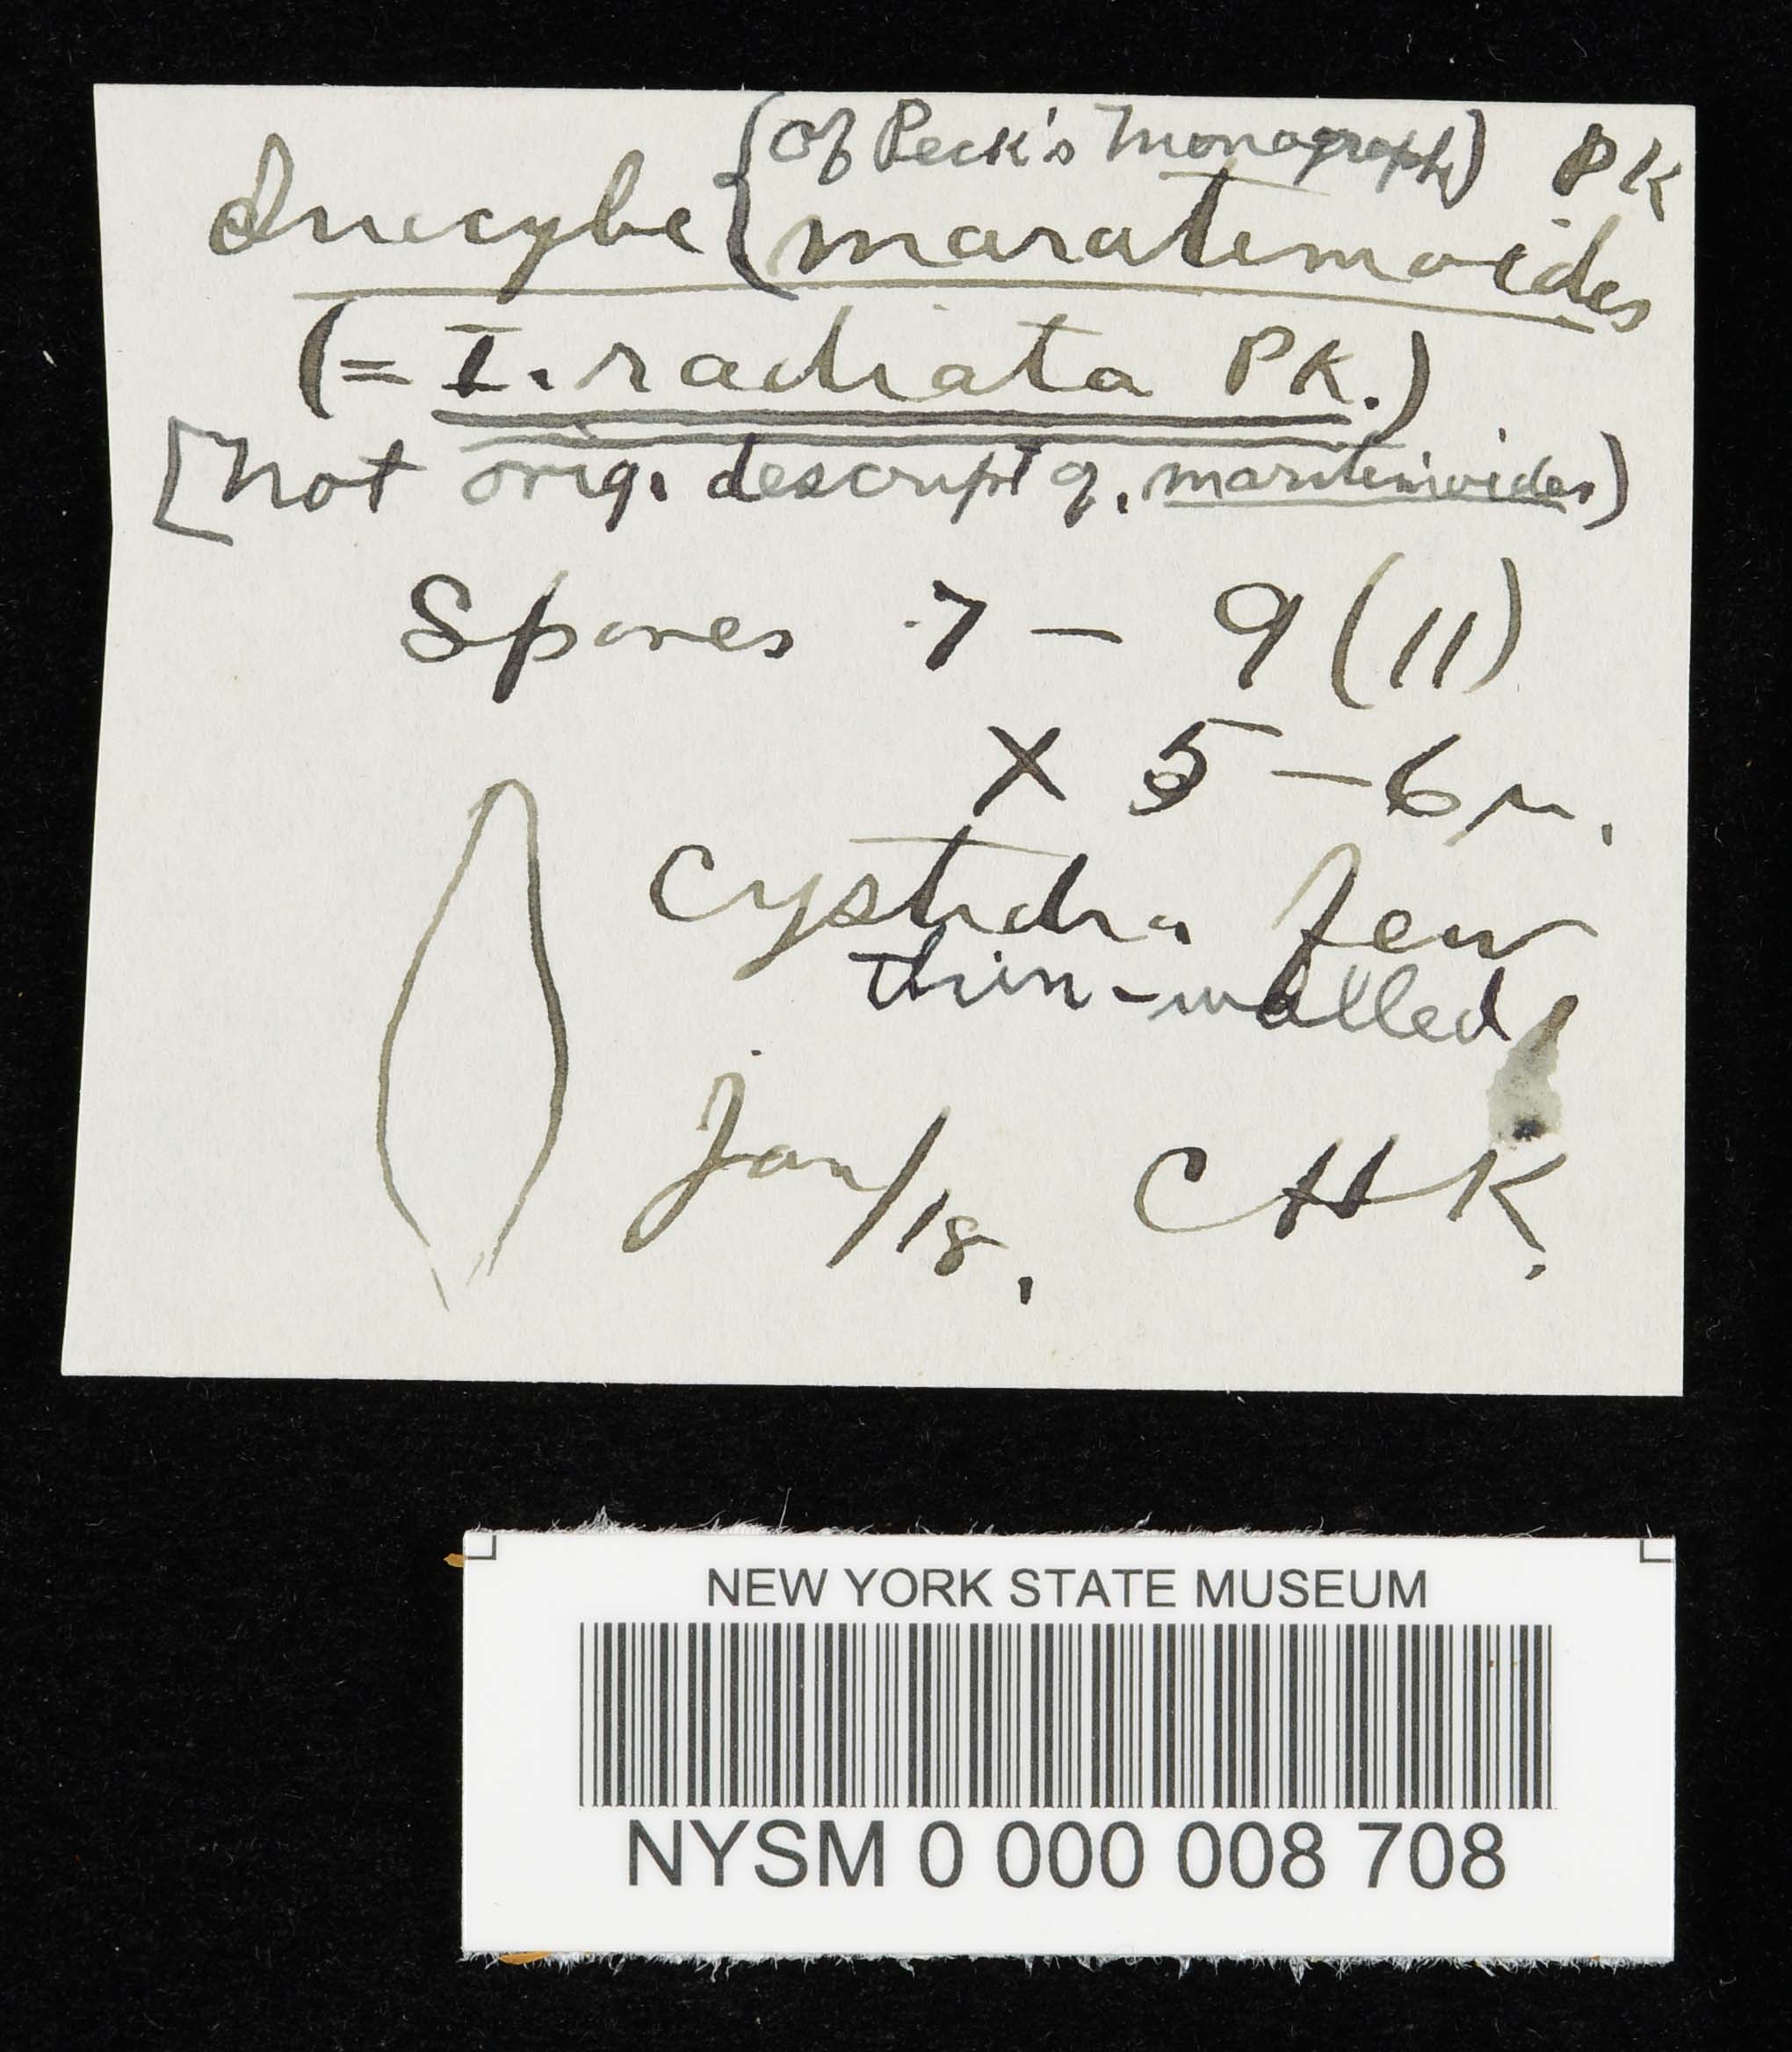 {(of Peck's Monograph) PK
Inocybe maratimoides
(= I. radiata PK.)
[not orig. descript of. maritimoides)
Spores 7 – 9 (11)
X 5 – 6 µ.
Cystidia few
thin-walled
Jan/18. CHK.
NEW YORK STATE MUSEUM
NYSM 0 000 008 708